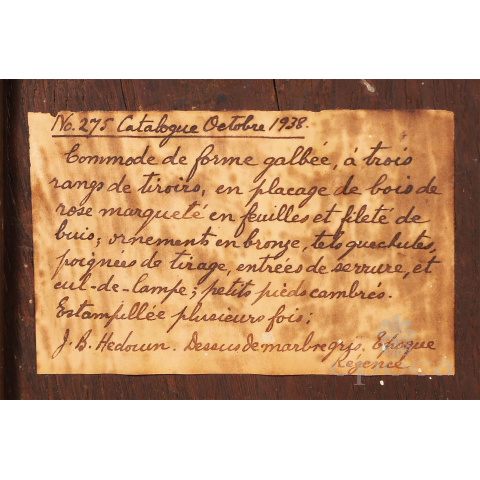 No. 275 Catalogue Octobre 1938.
Commode de forme galbée, à trois
rangs de tiroirs, en placage de bois de
rose marqueté en feuilles et fileté de
buis; ornements en bronze, tels que chutes,
poignées de tirage, entrées de serrure, et
cul-de-lampe; petits pieds cambrés.
Estampillée plusieurs fois:
J. B. Hedouin. Dessus de marbre gris. Epoque
Régence